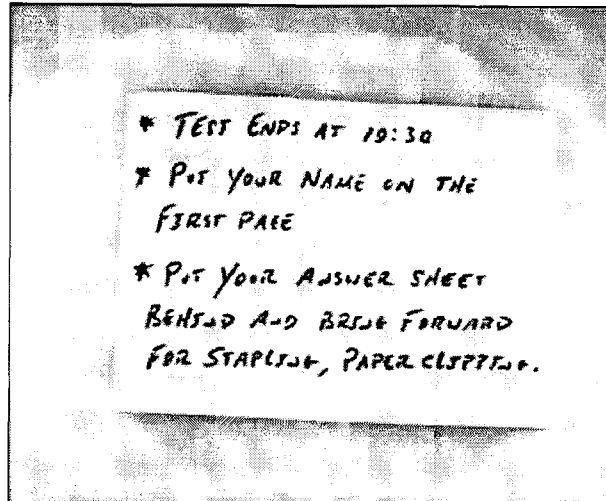 * TEST ENDS AT 19:30
* PUT YOUR NAME ON THE
FIRST PAGE
* PUT YOUR ANSWER SHEET
BEHIND AND BRING FORWARD
FOR STAPLING, PAPER CLIPPING.